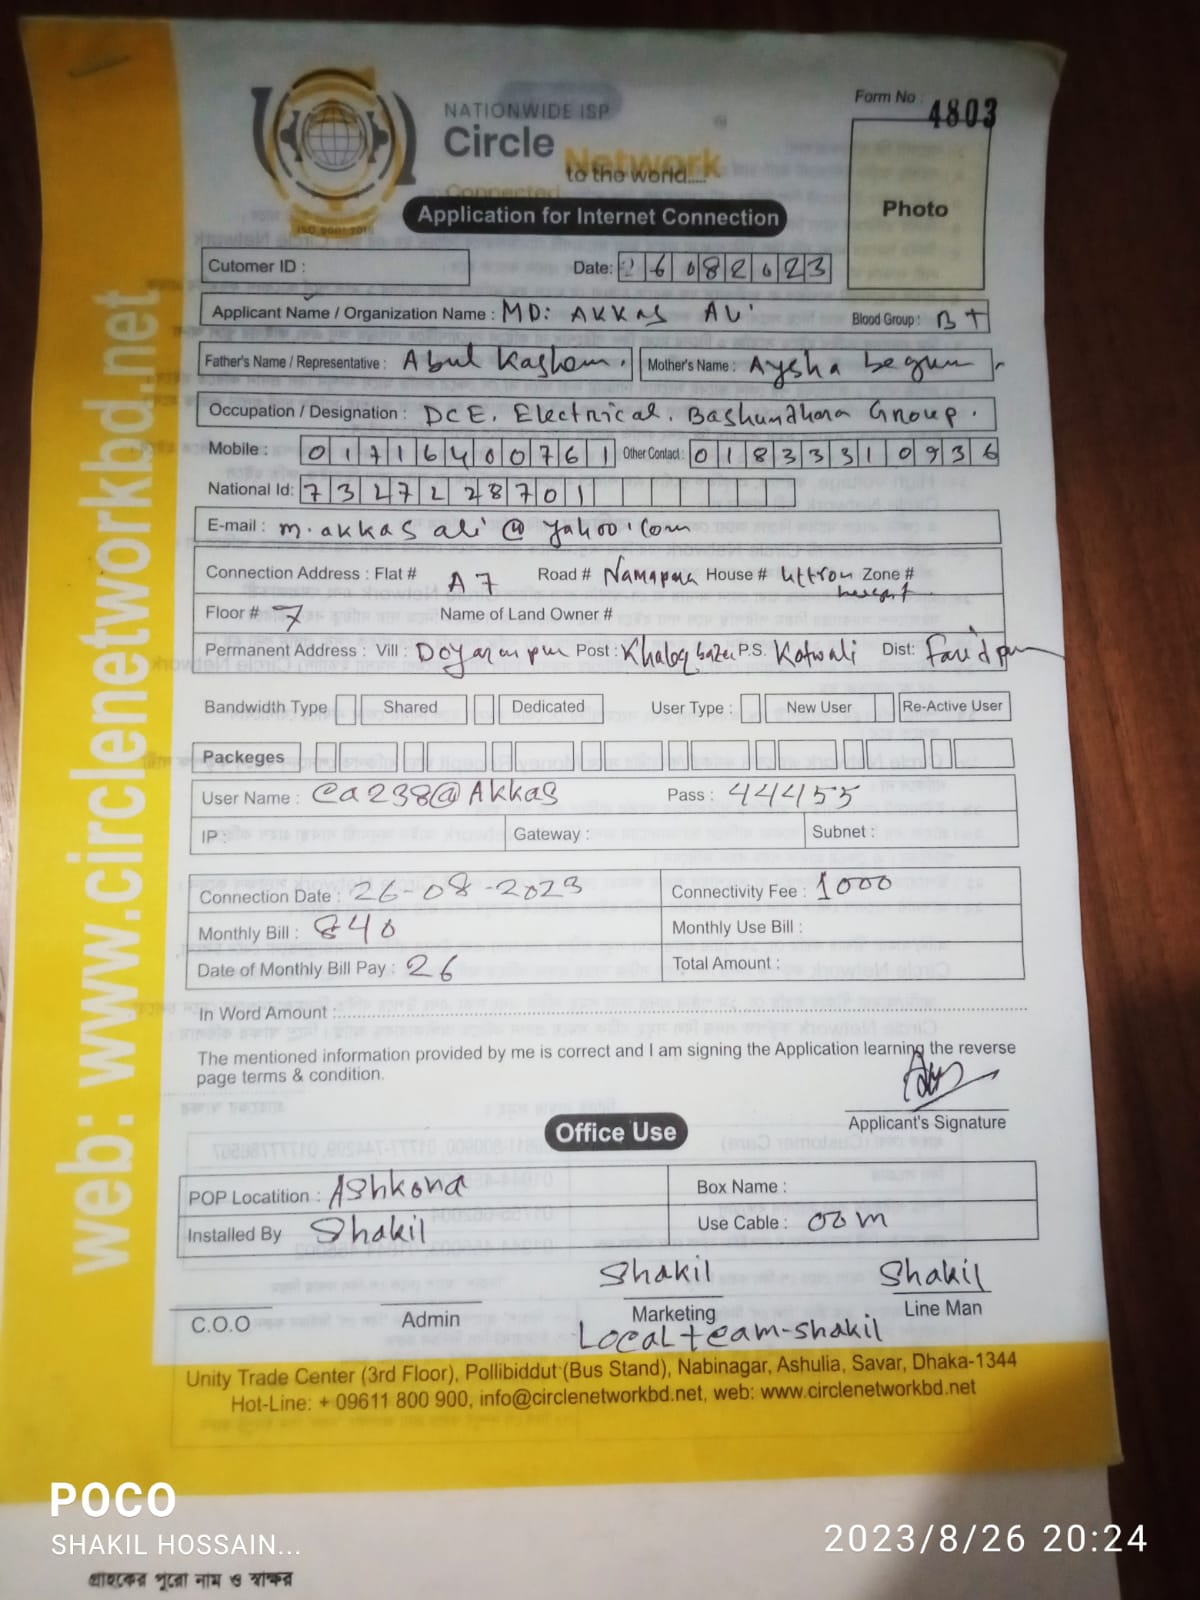 Form No 4803
NATIONWIDE ISP
Circle Network
Connected to the world.....
ISO 9001:2015
Photo
Application for Internet Connection
Cutomer ID : Date: 26082023
Applicant Name / Organization Name : MD: AKKAS ALI Blood Group : B+
Father's Name / Representative : Abul Kashem. Mother's Name : Aysha begum
Occupation / Designation : DCE, Electrical. Bashundhara Group.
Mobile : 01716400761 Other Contact : 01833310936
National Id: 7327228701
E-mail : m.akkas ali @ yahoo.com
Connection Address : Flat # A7 Road # Namapara House # Uttron Zone #
Floor # 7 Name of Land Owner #
Permanent Address : Vill : Doyarampur Post : P.S. Kotwali Dist: Faridpur
Bandwidth Type Shared Dedicated User Type : New User Re-Active User
Packeges
User Name : Ca238@Akkas Pass : 44455
IP : Gateway : Subnet :
Connection Date : 26-08-2023 Connectivity Fee : 1000
Monthly Bill : 840 Monthly Use Bill :
Date of Monthly Bill Pay : 26 Total Amount :
In Word Amount :
The mentioned information provided by me is correct and I am signing the Application learning the reverse
page terms & condition.
Applicant's Signature
Office Use
POP Locatition : Ashkona Box Name :
Installed By Shakil Use Cable : 00m
Shakil Shakil
C.O.O Admin Marketing Line Man
Local team-shakil
Unity Trade Center (3rd Floor), Pollibiddut (Bus Stand), Nabinagar, Ashulia, Savar, Dhaka-1344
Hot-Line: + 09611 800 900, info@circlenetworkbd.net, web: www.circlenetworkbd.net
web: www.circlenetworkbd.net
POCO
SHAKIL HOSSAIN...
2023/8/26 20:24
গ্রাহকের পুরো নাম ও স্বাক্ষর